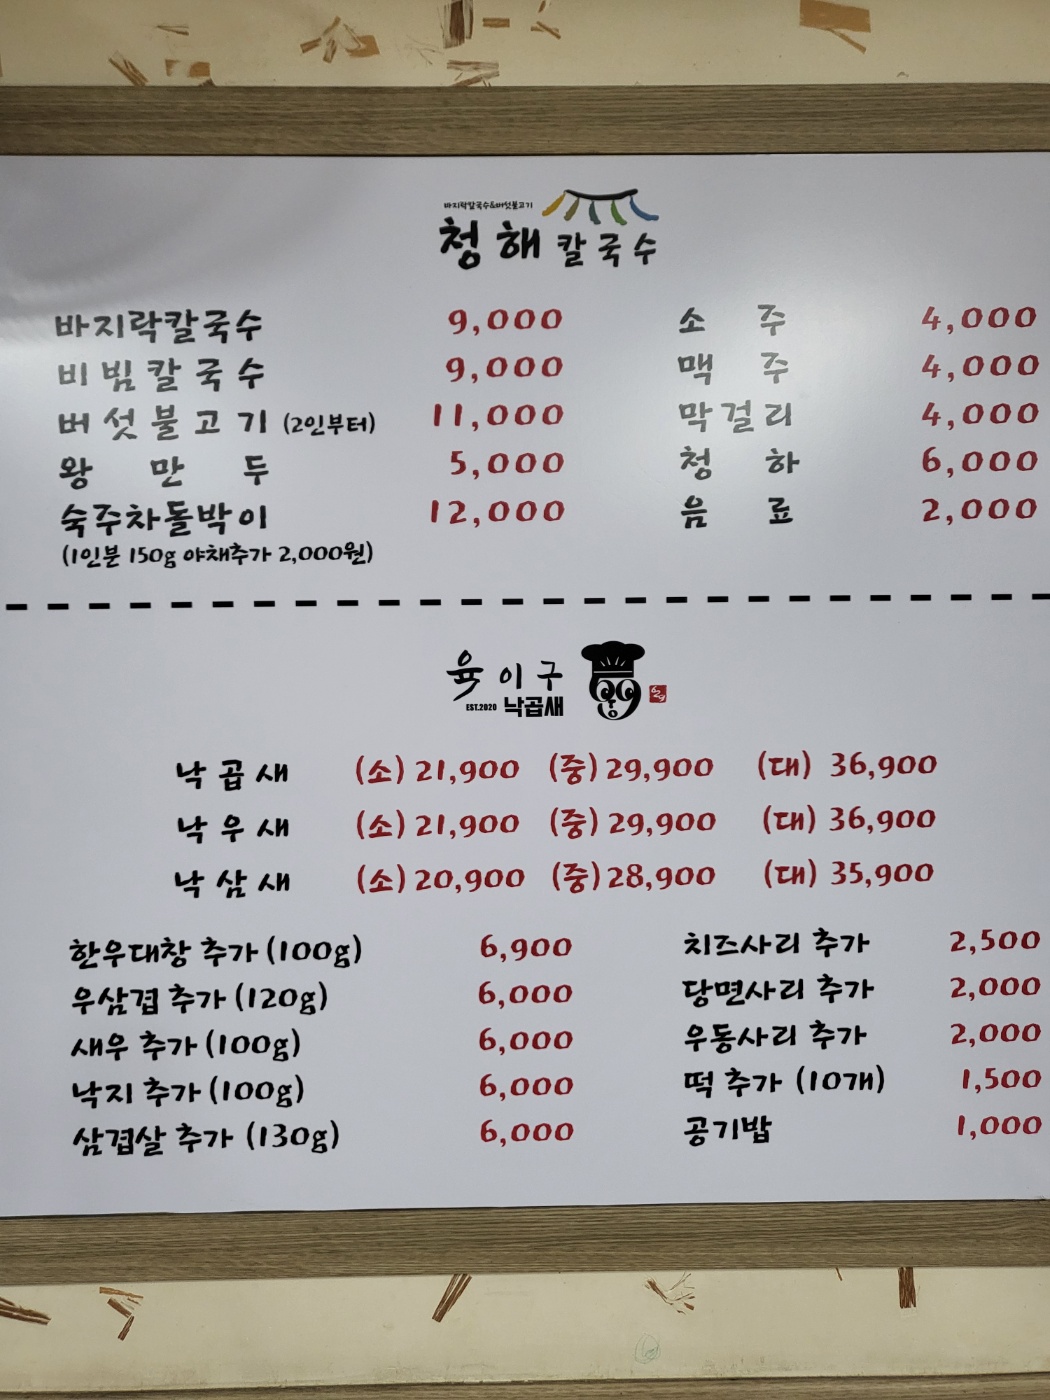 바지락칼국수&버섯불고기
청해칼국수
바지락칼국수 9,000
비빔칼국수 9,000
버섯불고기 (2인부터) 11,000
왕만두 5,000
숙주차돌박이 12,000
(1인분 150g 야채추가 2,000원)
소주 4,000
맥주 4,000
막걸리 4,000
청하 6,000
음료 2,000
육이구
EST.2020 낙곱새
629
낙곱새 (소) 21,900 (중) 29,900 (대) 36,900
낙우새 (소) 21,900 (중) 29,900 (대) 36,900
낙삼새 (소) 20,900 (중) 28,900 (대) 35,900
한우대창 추가 (100g) 6,900
우삼겹 추가 (120g) 6,000
새우 추가 (100g) 6,000
낙지 추가 (100g) 6,000
삼겹살 추가 (130g) 6,000
치즈사리 추가 2,500
당면사리 추가 2,000
우동사리 추가 2,000
떡 추가 (10개) 1,500
공기밥 1,000